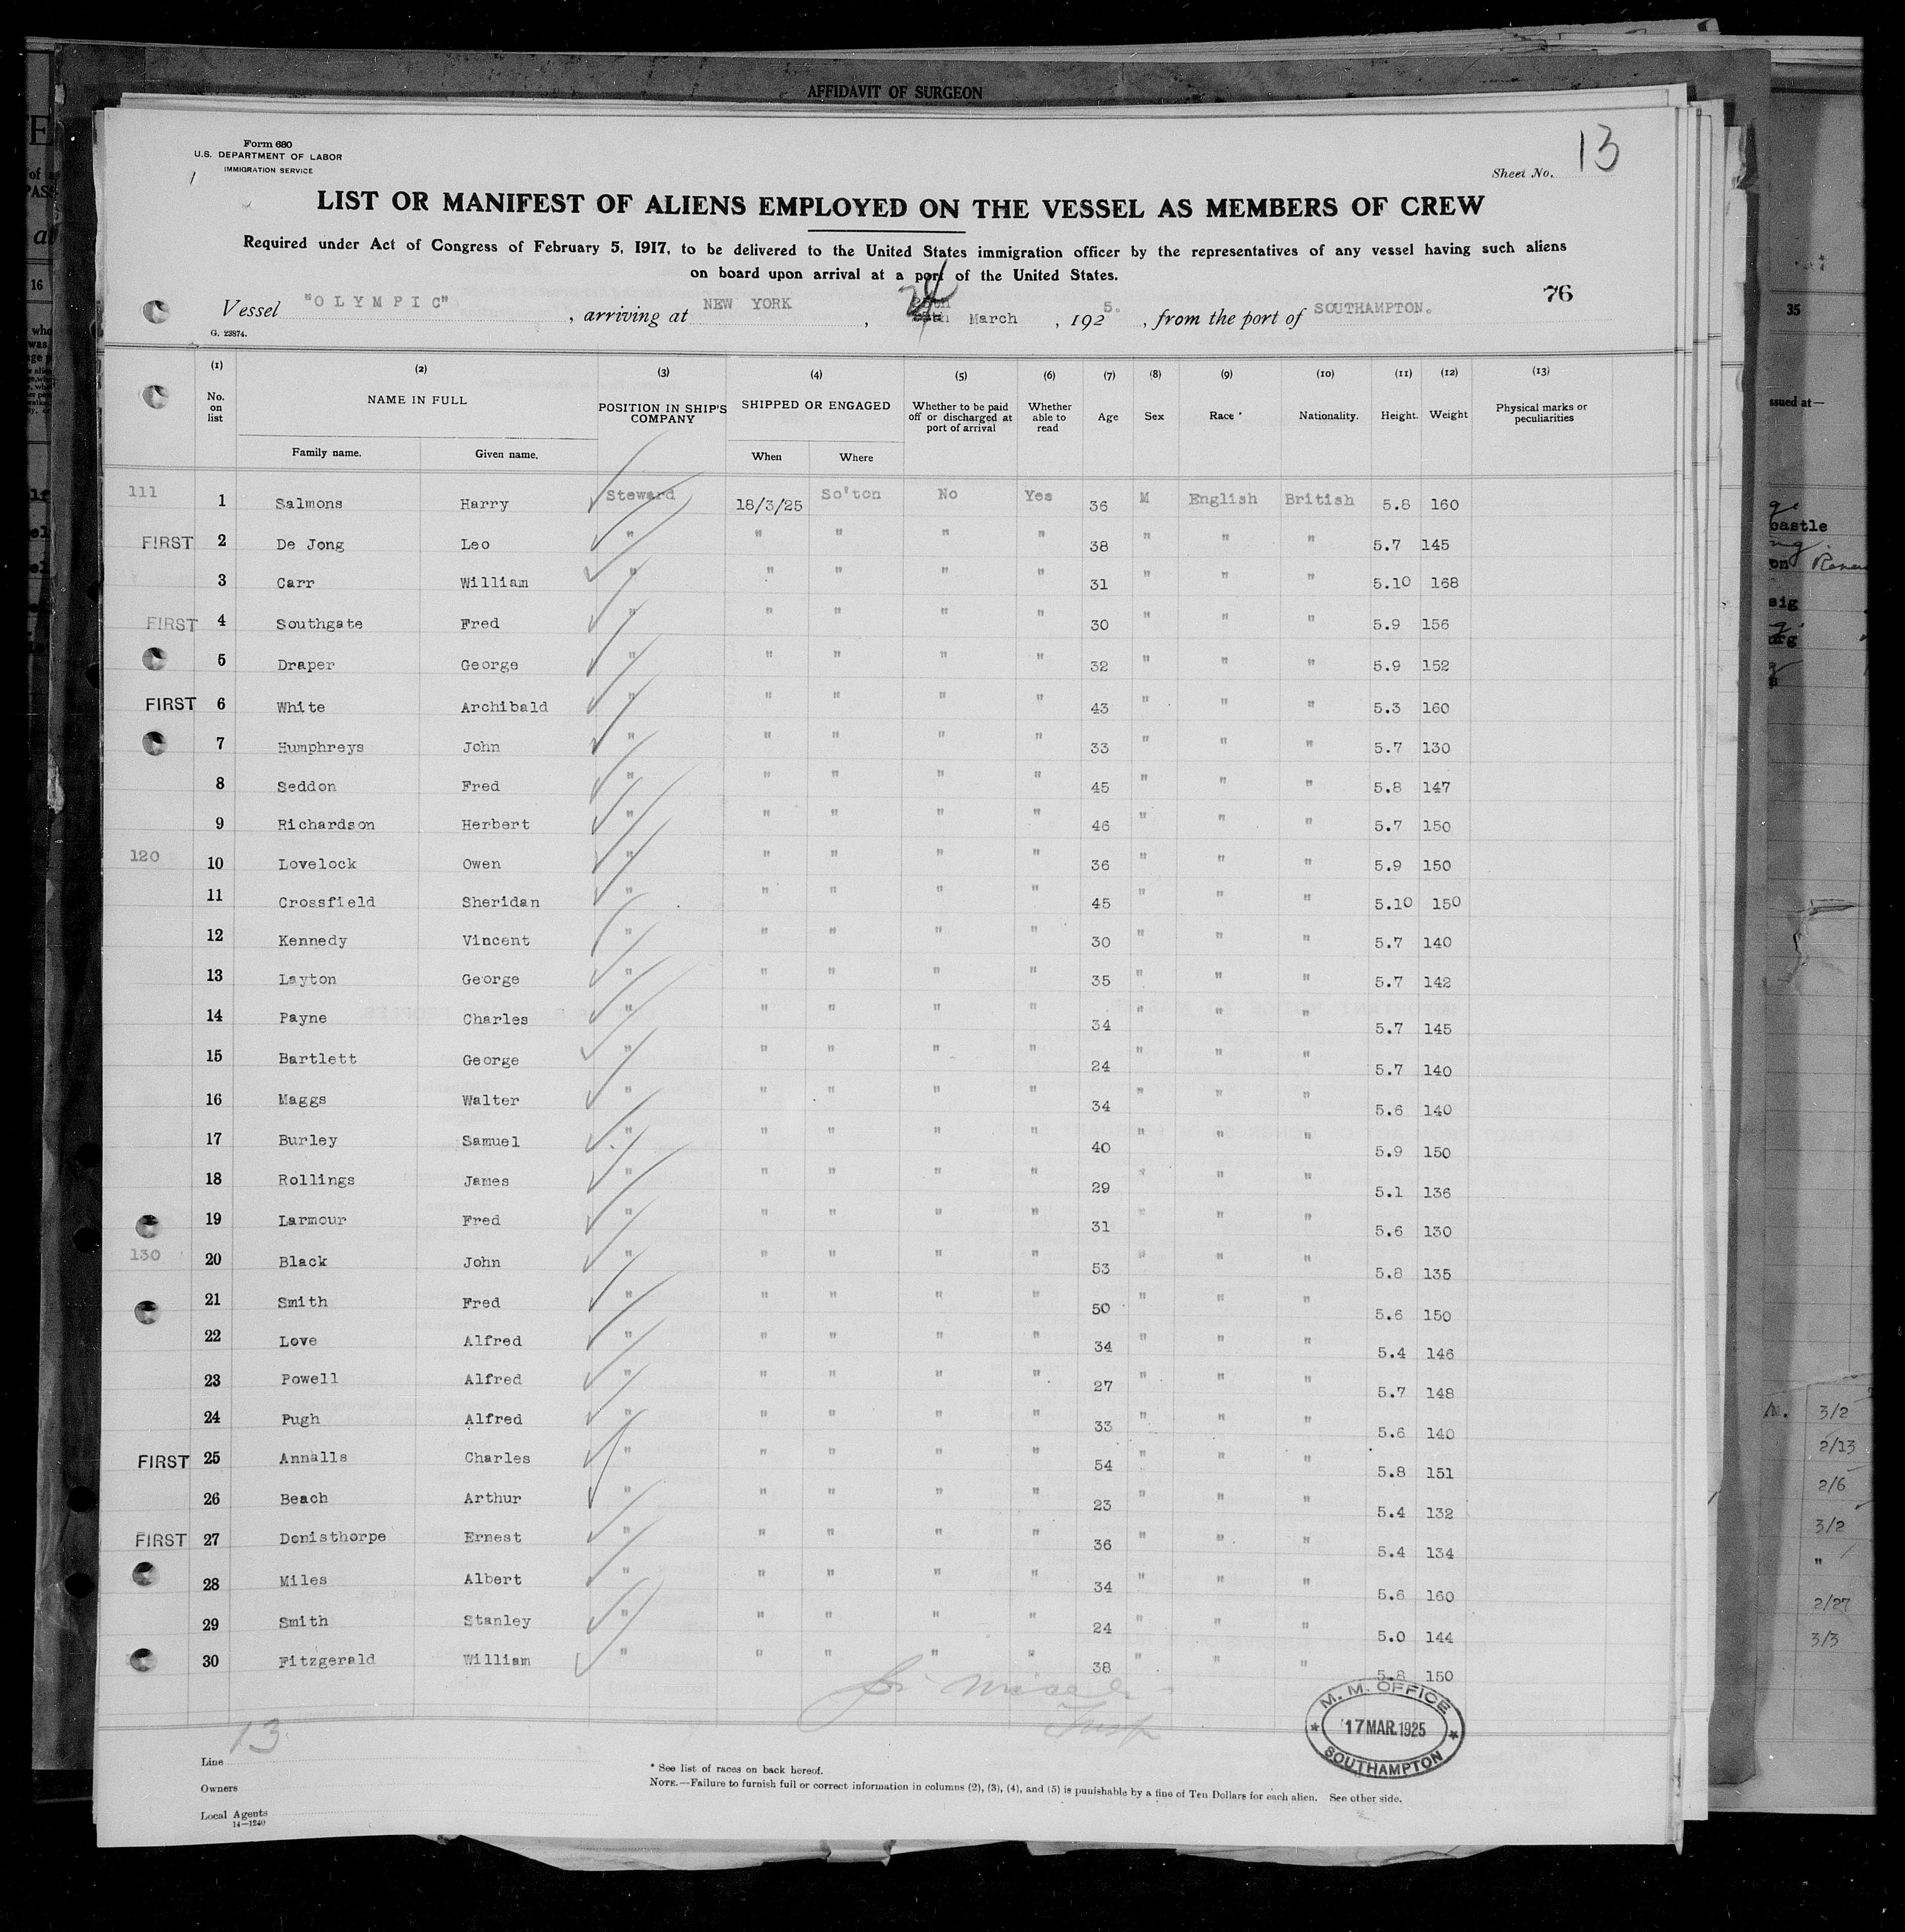 AFFIDAVIT OF SURGEON
Form 680
U.S. DEPARTMENT OF LABOR
IMMIGRATION SERVICE
Sheet No. 13
LIST OR MANIFEST OF ALIENS EMPLOYED ON THE VESSEL AS MEMBERS OF CREW
Required under Act of Congress of February 5, 1917, to be delivered to the United States immigration officer by the representatives of any vessel having such aliens
on board upon arrival at a port of the United States.
76
Vessel "OLYMPIC", arriving at NEW YORK, 24 March, 1925., from the port of SOUTHAMPTON.
G. 23874.
(1) (2) (3) (4) (5) (6) (7) (8) (9) (10) (11) (12) (13)
No. on list NAME IN FULL POSITION IN SHIP'S COMPANY SHIPPED OR ENGAGED Whether to be paid off or discharged at port of arrival Whether able to read Age Sex Race * Nationality. Height. Weight Physical marks or peculiarities
Family name. Given name. When Where
111 1 Salmons Harry Steward 18/3/25 So'ton No Yes 36 M English British 5.8 160
FIRST 2 De Jong Leo " " " " " 38 " " " 5.7 145
3 Carr William " " " " " 31 " " " 5.10 168
FIRST 4 Southgate Fred " " " " " 30 " " " 5.9 156
5 Draper George " " " " " 32 " " " 5.9 152
FIRST 6 White Archibald " " " " " 43 " " " 5.3 160
7 Humphreys John " " " " " 33 " " " 5.7 130
8 Seddon Fred " " " " " 45 " " " 5.8 147
9 Richardson Herbert " " " " " 46 " " " 5.7 150
120 10 Lovelock Owen " " " " " 36 " " " 5.9 150
11 Crossfield Sheridan " " " " " 45 " " " 5.10 150
12 Kennedy Vincent " " " " " 30 " " " 5.7 140
13 Layton George " " " " " 35 " " " 5.7 142
14 Payne Charles " " " " " 34 " " " 5.7 145
15 Bartlett George " " " " " 24 " " " 5.7 140
16 Maggs Walter " " " " " 34 " " " 5.6 140
17 Burley Samuel " " " " " 40 " " " 5.9 150
18 Rollings James " " " " " 29 " " " 5.1 136
19 Larmour Fred " " " " " 31 " " " 5.6 130
130 20 Black John " " " " " 53 " " " 5.8 135
21 Smith Fred " " " " " 50 " " " 5.6 150
22 Love Alfred " " " " " 34 " " " 5.4 146
23 Powell Alfred " " " " " 27 " " " 5.7 148
24 Pugh Alfred " " " " " 33 " " " 5.6 140
FIRST 25 Annalls Charles " " " " " 54 " " " 5.8 151
26 Beach Arthur " " " " " 23 " " " 5.4 132
FIRST 27 Donisthorpe Ernest " " " " " 36 " " " 5.4 134
28 Miles Albert " " " " " 34 " " " 5.6 160
29 Smith Stanley " " " " " 24 " " " 5.0 144
30 Fitzgerald William " " " " " 38 " " " 5.8 150
M. M. OFFICE
17 MAR. 1925
SOUTHAMPTON
13
Line
Owners
Local Agents
14—1240
* See list of races on back hereof.
NOTE.—Failure to furnish full or correct information in columns (2), (3), (4), and (5) is punishable by a fine of Ten Dollars for each alien. See other side.
16
35
ssued at—
castle
3/2
2/13
2/6
3/2
"
2/27
3/3